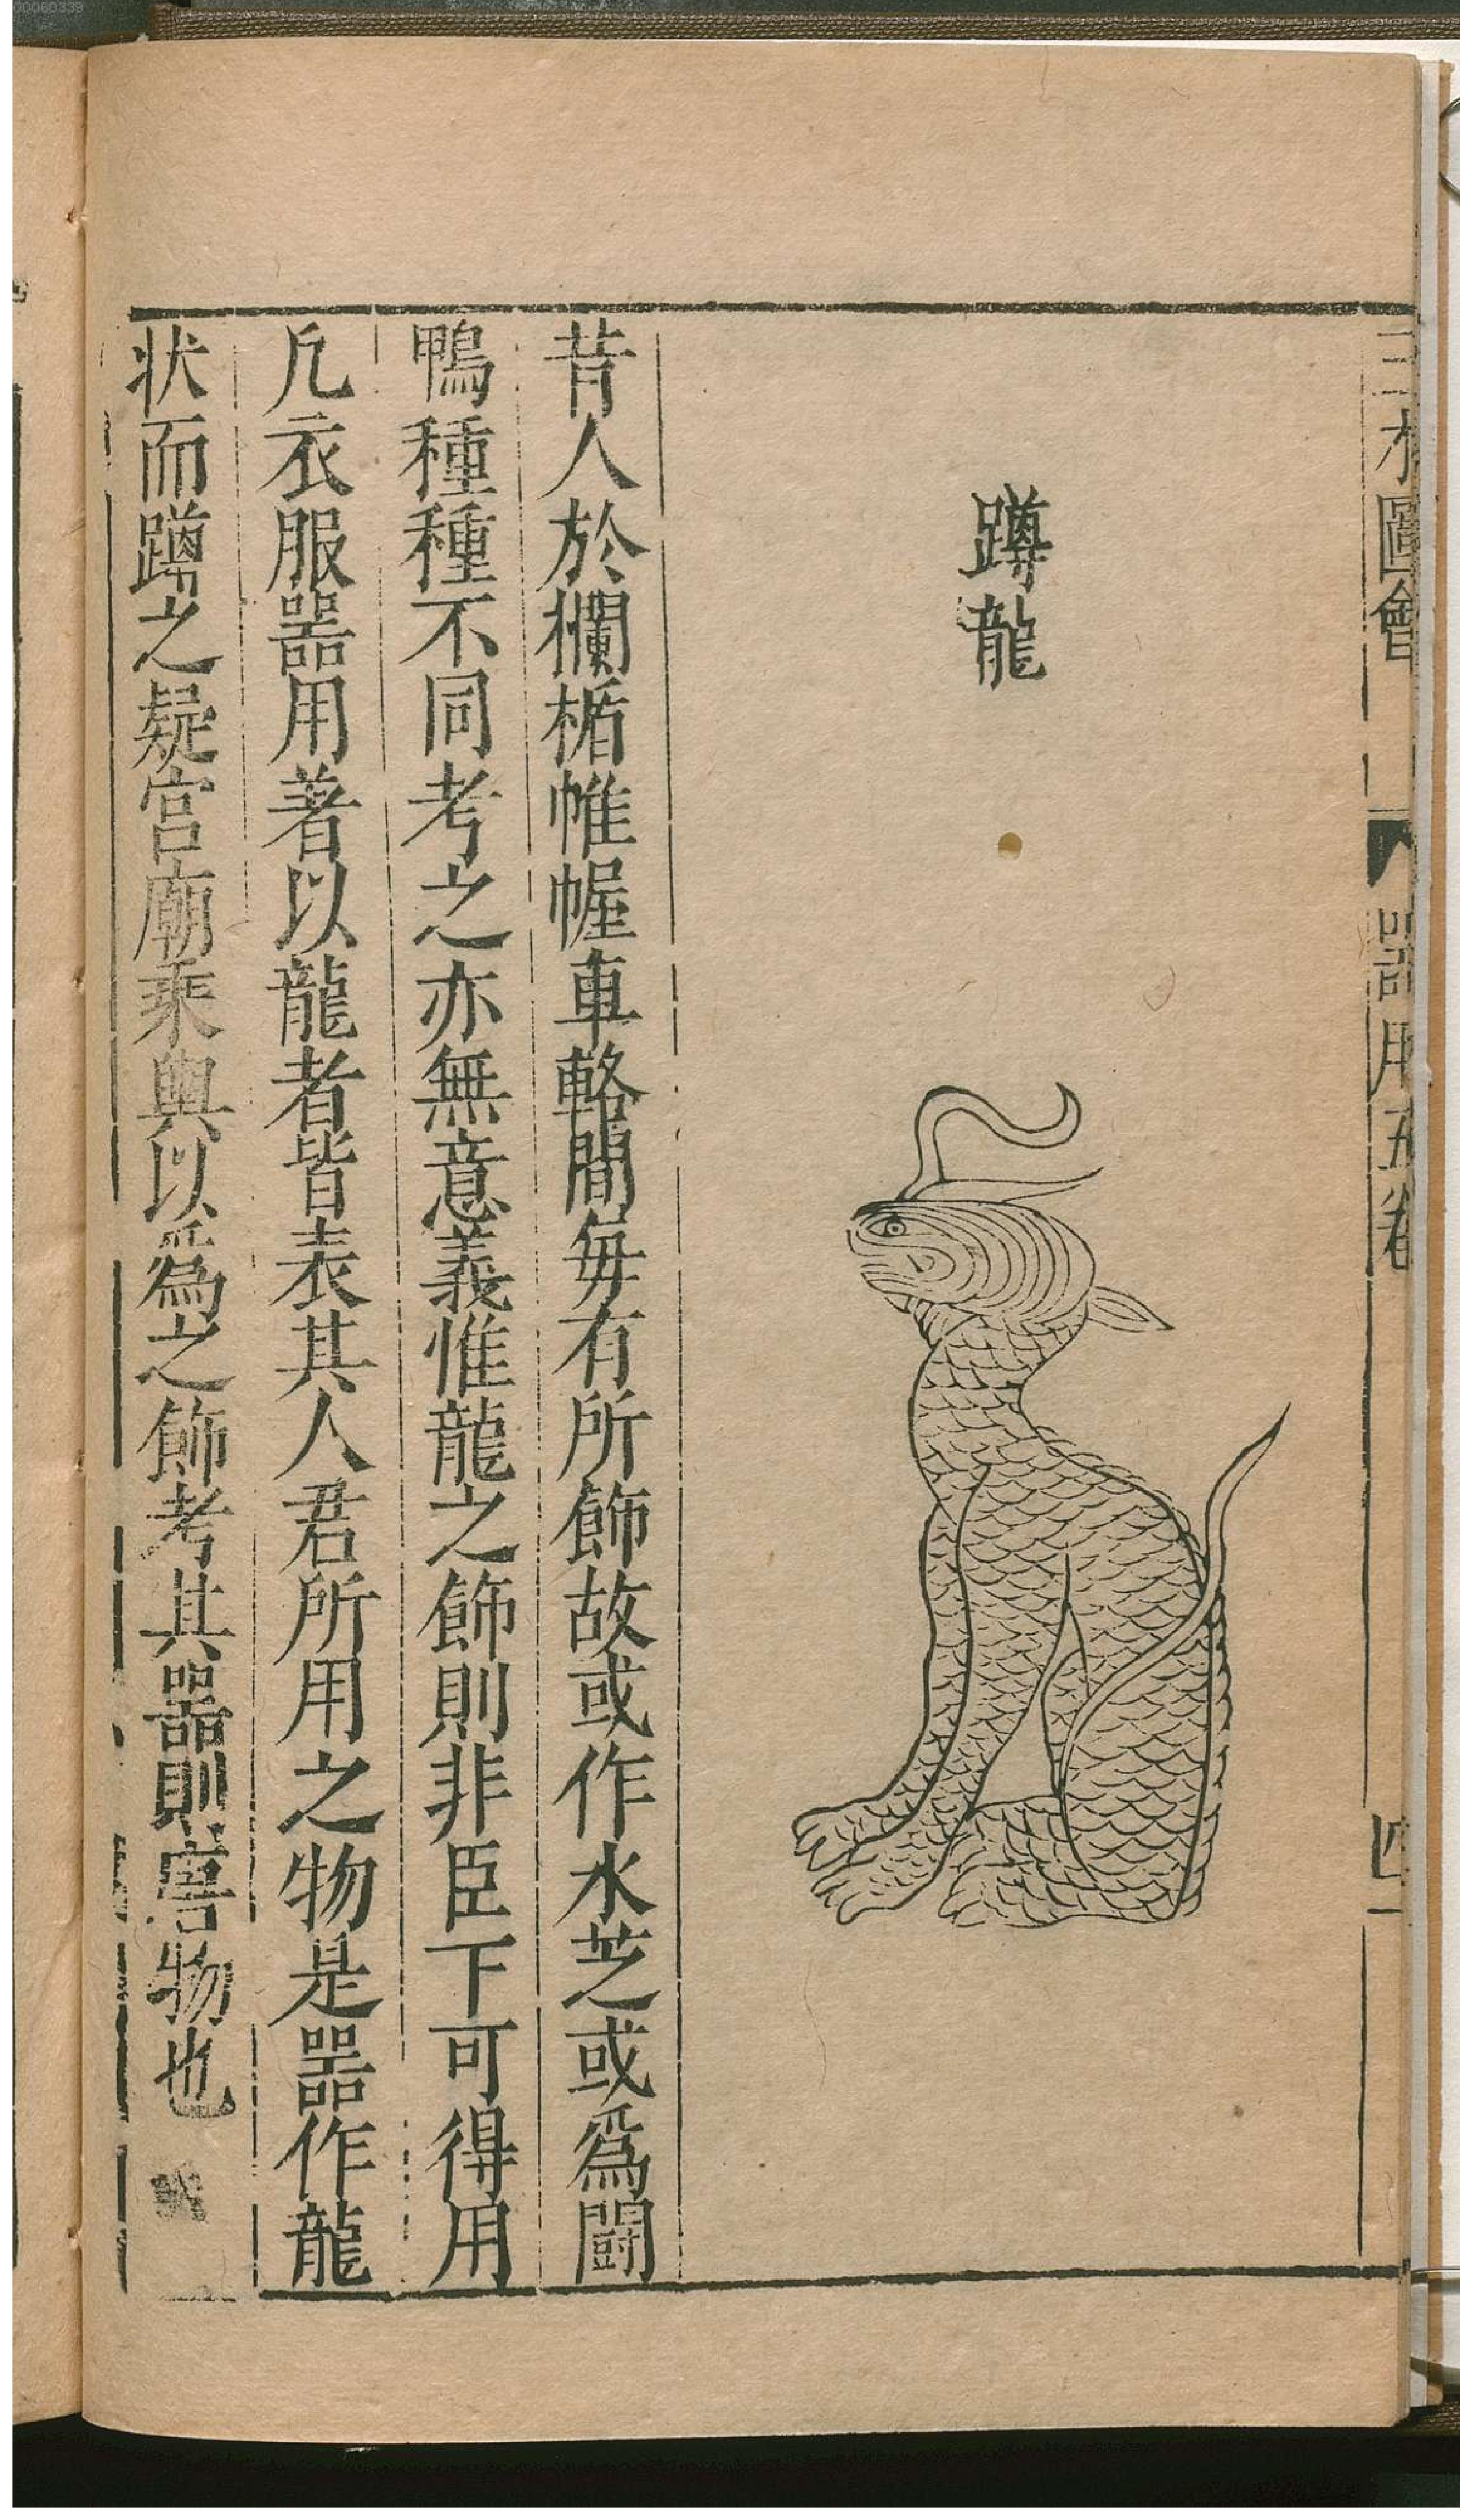 三才圖會
器用五卷
四一
蹲龍
昔人於欄楯帷幄車輅間每有所飾故或作水芝或爲鬪
鴨種種不同考之亦無意義惟龍之飾則非臣下可得用
凡衣服器用著以龍者皆表其人君所用之物是器作龍
状而蹲之疑宫廟乘輿以爲之飾考其器則唐物也
00060339